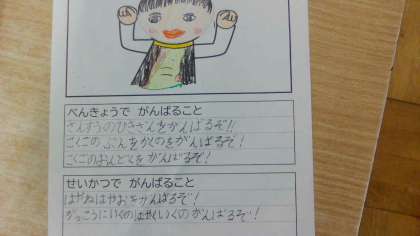 べんきょうで がんばること
さんすうのひきざんをがんばるぞ!!
こくごの ぶんをかくのをがんばるぞ!
こくごのおんどくを がんばるぞ!
せいかつで がんばること
はやねはやおきがんばるぞ!
がっこうにいくのはやくいくのがんばるぞ!